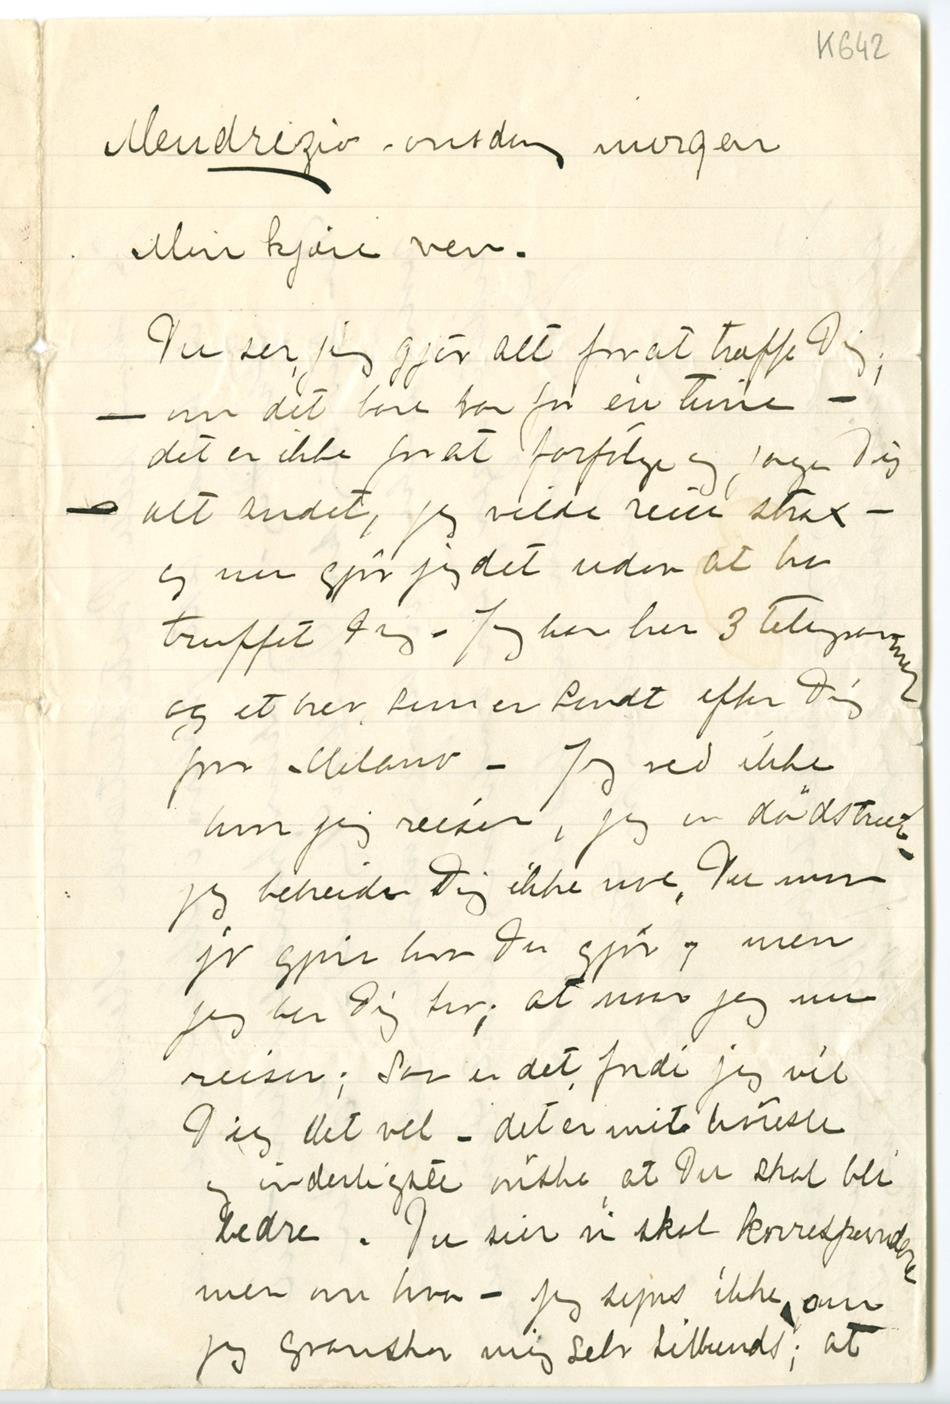 K642
Mendrizio - onsdag morgen
Min kjære ven.
Du ser, jeg gjør alt for at træffe Dig,
– om det bare var for én time –
det er ikke for at forfølge og jage Dig
– alt andet, jeg vilde reise strax –
og nu gjør jeg det uden at ha
truffet Dig – Jeg har her 3 telegrammer
og et brev, som er sendt efter Dig
fra Milano – Jeg ved ikke
hvor jeg reiser, jeg er dødstræt –
jeg bebreider Dig ikke noe, Du maa
jo gjøre hva Du gjør, men
jeg ber Dig tro, at naar jeg nu
reiser; saa er det, fordi jeg vil
Dig det vel – det er mit
og inderligste ønske, at Du skal bli
bedre. Du sier vi skal korrespondere
men om hva – jeg synes ikke, om
jeg gransker mig selv tilbunds; at